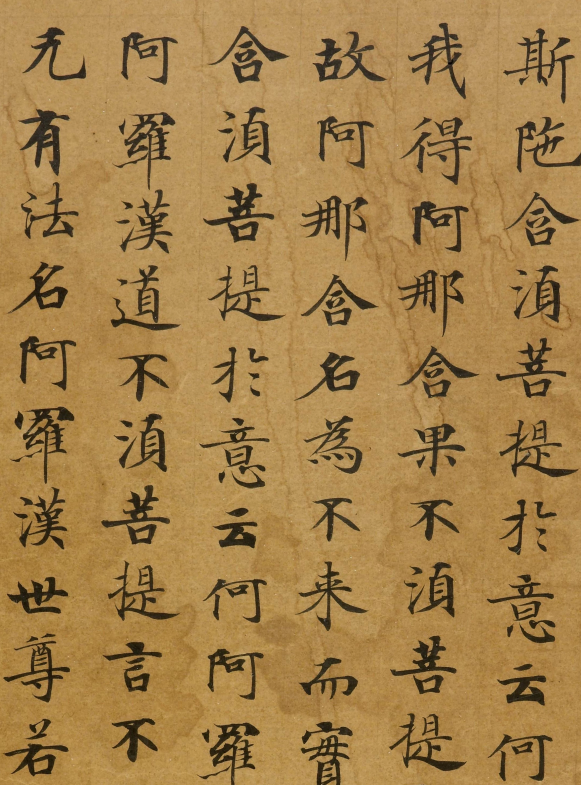 斯陁含湏菩提於意云何
我得阿那含果不湏菩提
故阿那含名為不来而實
含湏菩提於意云何阿羅
阿羅漢道不湏菩提言不
无有法名阿羅漢世尊若